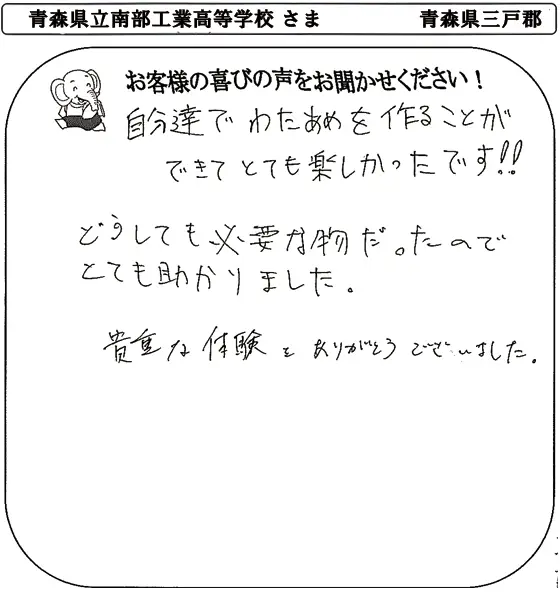 青森県立南部工業高等学校 さま 青森県三戸郡
お客様の喜びの声をお聞かせください！
自分達で わたあめを 作ることが
できて とても楽しかったです!!
どうしても必要な物だったので
とても助かりました。
貴重な体験を ありがとうございました。